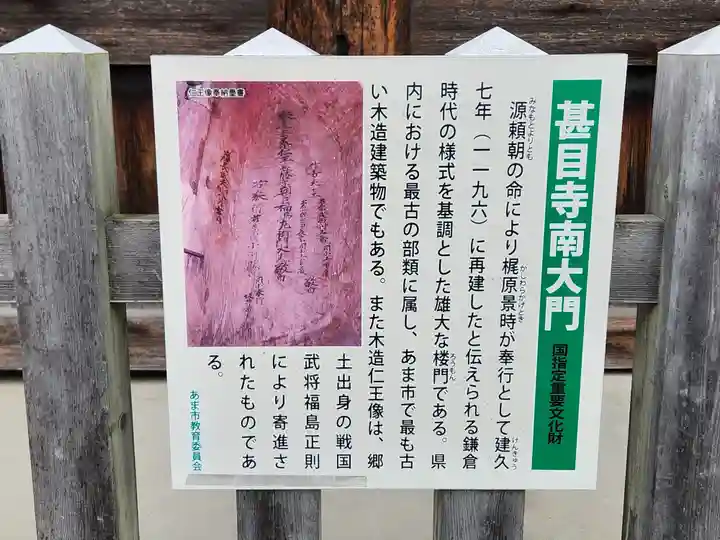 甚目寺南大門
国指定重要文化財
みなもとよりとも
源頼朝の命により梶原景時が奉行として建久
かじわらかげとき
けんきゅう
七年（一一九六）に再建したと伝えられる鎌倉
時代の様式を基調とした雄大な楼門である。県
ろうもん
内における最古の部類に属し、あま市で最も古
い木造建築物でもある。また木造仁王像は、郷
土出身の戦国
武将福島正則
により寄進さ
れたものであ
る。
あま市教育委員会
仁王像奉納墨書